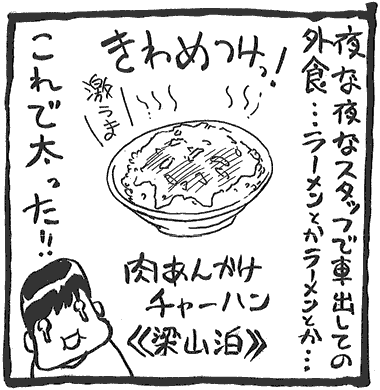 夜な夜なスタッフで車出しての
外食…ラーメンとかラーメンとか…
きわめつけっ!
激うま
肉あんかけ
チャーハン
《梁山泊》
これで太った!!